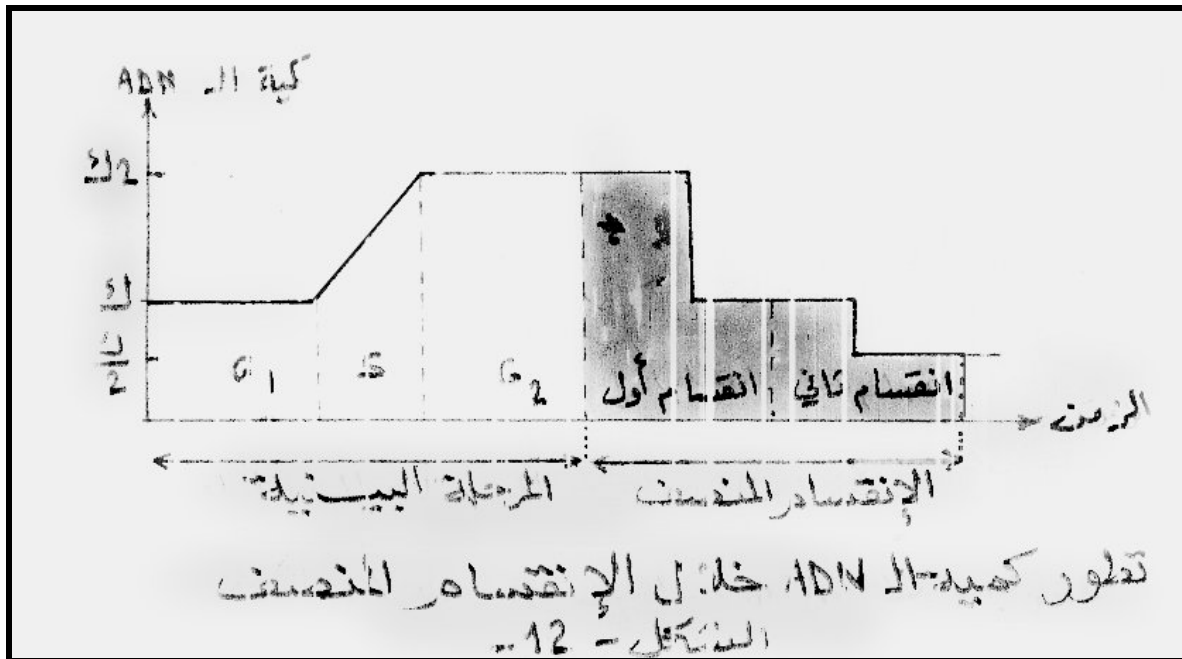 كمية الـ ADN
2ك
ك
ك/2
G1
S
G2
انقسام أول
انقسام ثاني
الزمن
المرحلة البينية
الإنقسام المنصف
تطور كمية الـ ADN خلال الإنقسام المنصف
الشكل - 12 -